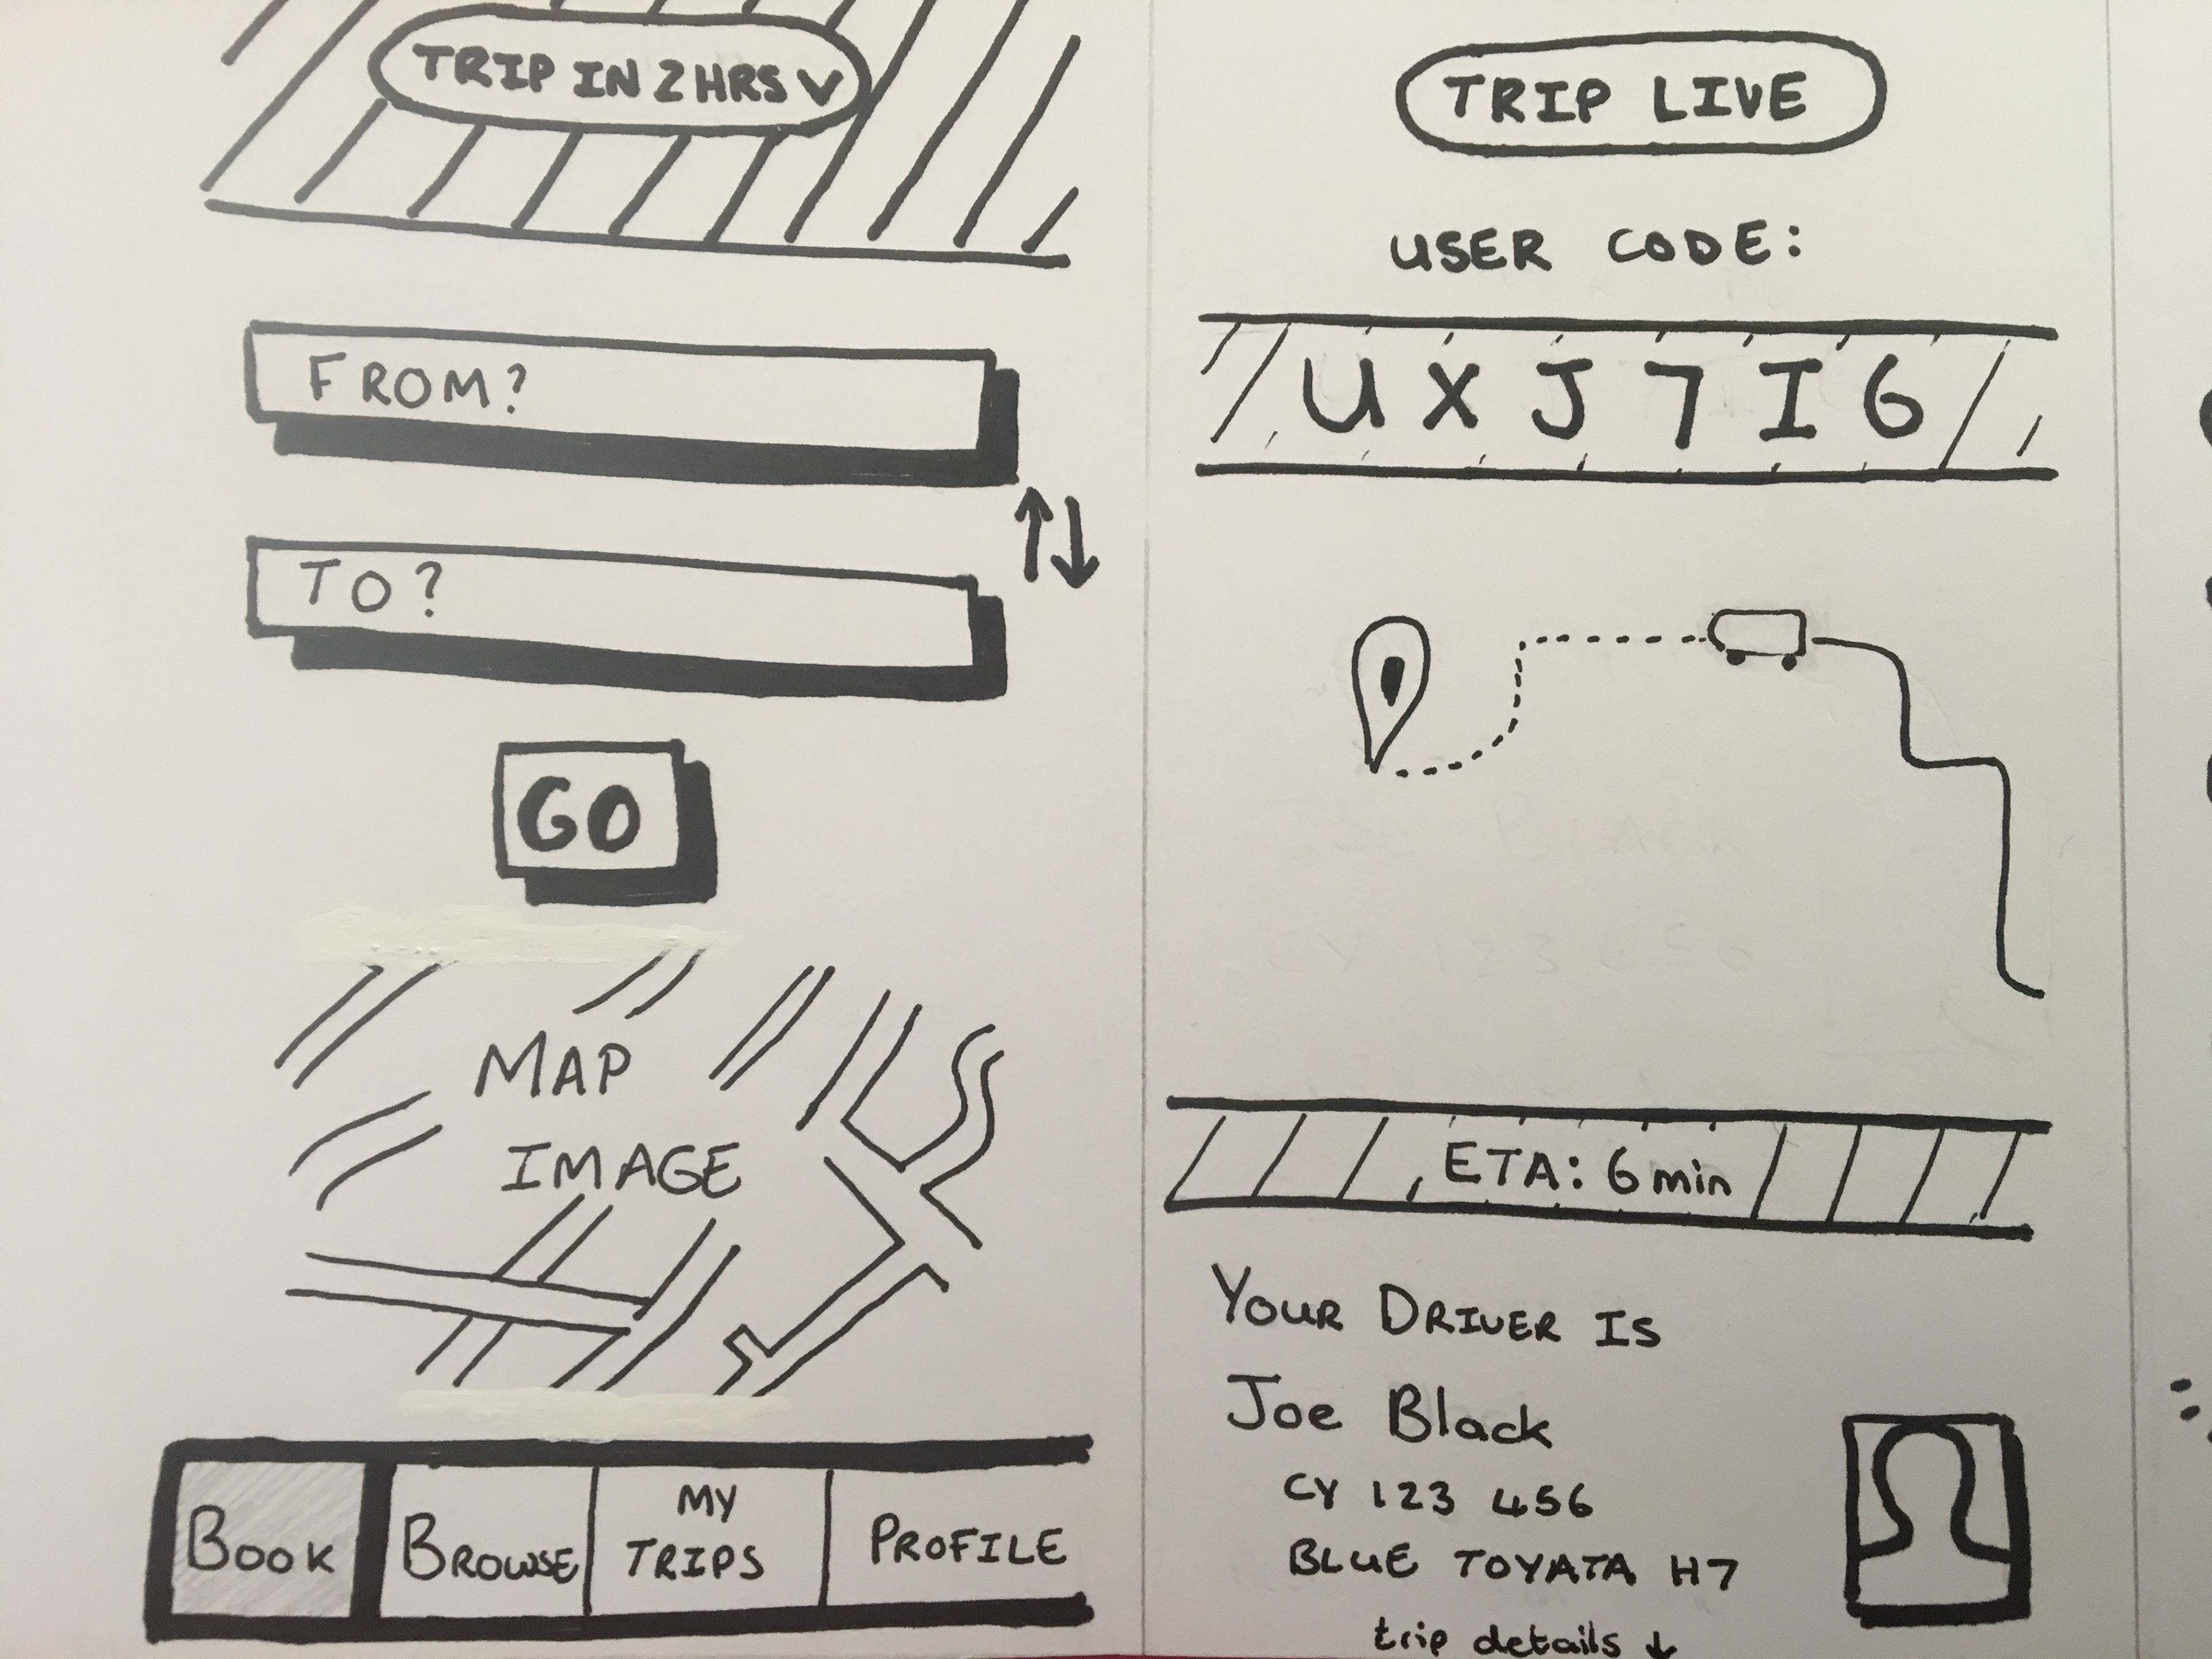 TRIP IN 2 HRS V
FROM?
TO?
GO
MAP
IMAGE
BOOK
BROWSE
MY
TRIPS
PROFILE
TRIP LIVE
USER CODE:
U X J 7 I G
ETA: 6 min
YOUR DRIVER IS
Joe Black
CY 123 456
BLUE TOYATA H7
trip details ↓